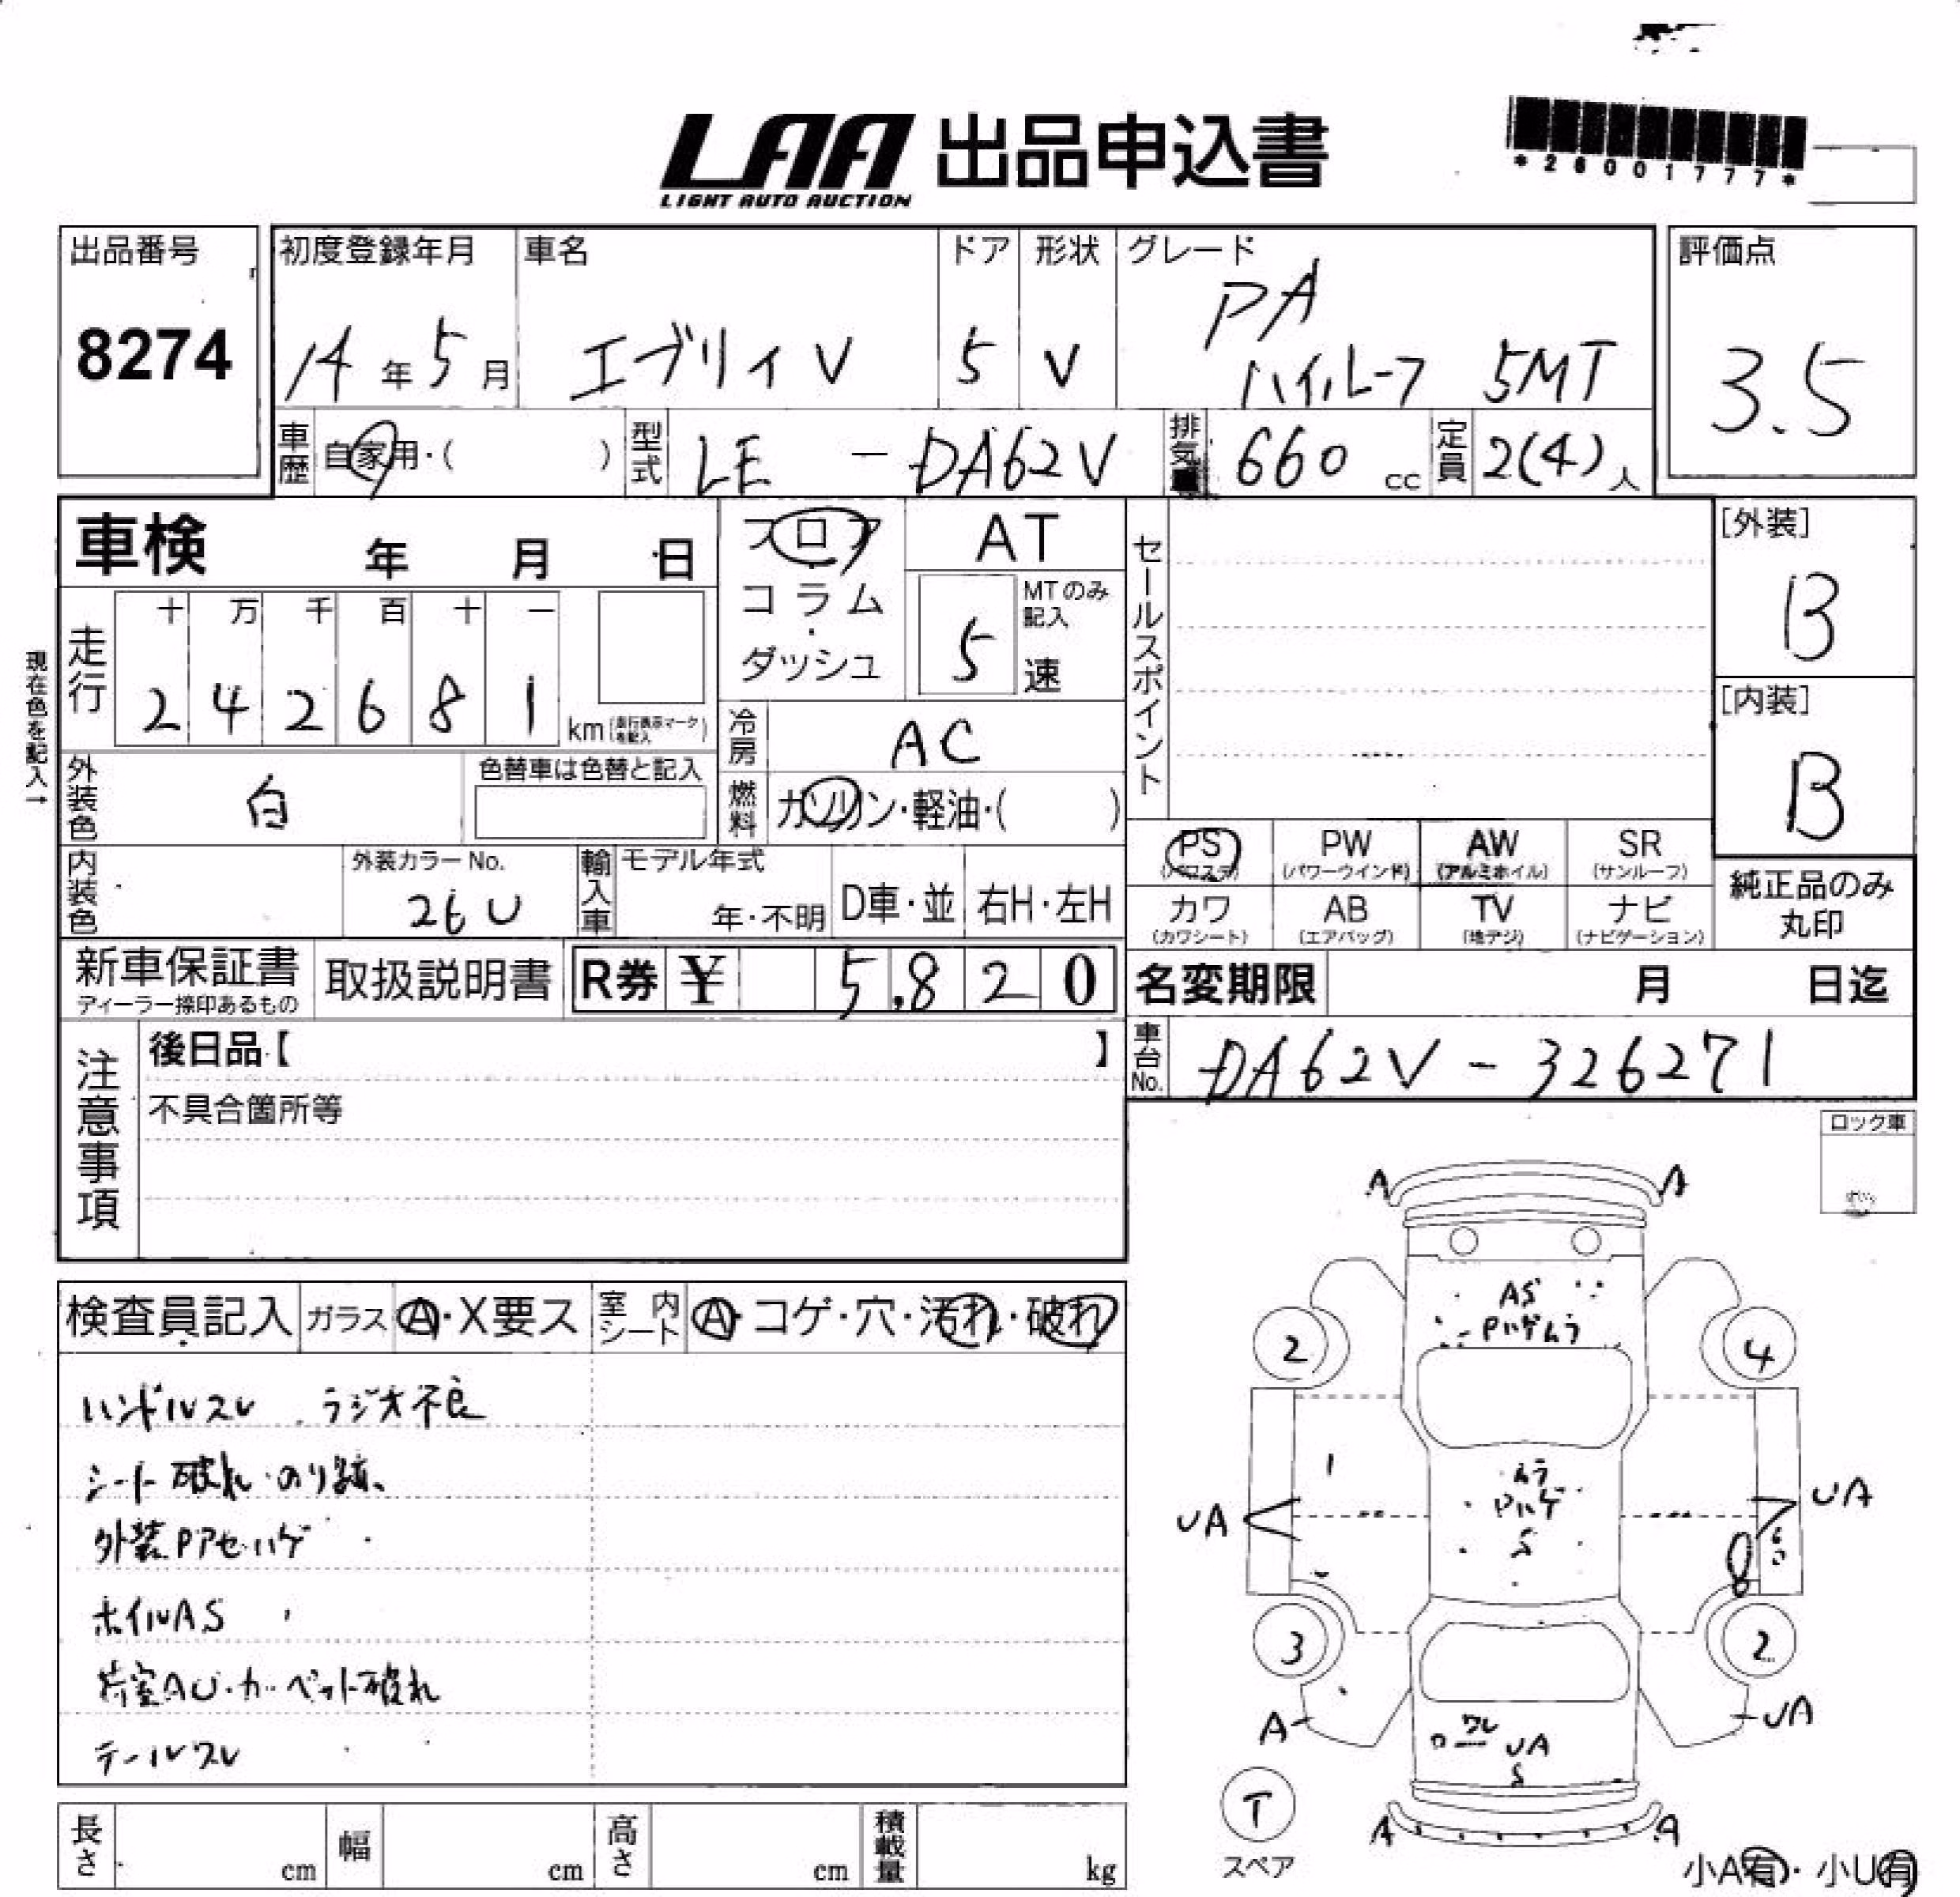 LAA 出品申込書
LIGHT AUTO AUCTION
*26001777*
出品番号
8274
初度登録年月
14年5月
車名
エブリィV
ドア
5
形状
V
グレード
PA
ハイルーフ 5MT
評価点
3.5
車歴
自家用・( )
型式
LE - DA62V
排気量
660 cc
定員
2(4)人
車検 年 月 日
フロア
コラム
・
ダッシュ
AT
5
MTのみ記入
速
セールスポイント
[外装]
B
[内装]
B
現在色を記入→
走行
十 万 千 百 十 一
2 4 2 6 8 1 km(走行表示マークを記入)
冷房
AC
外装色
白
色替車は色替と記入
燃料
ガソリン・軽油・( )
内装色
外装カラーNo.
26U
輸入車
モデル年式
年・不明
D車・並
右H・左H
PS
(パワステ)
PW
(パワーウインド)
AW
(アルミホイル)
SR
(サンルーフ)
カワ
(カワシート)
AB
(エアバッグ)
TV
(地デジ)
ナビ
(ナビゲーション)
純正品のみ
丸印
新車保証書
ディーラー捺印あるもの
取扱説明書
R券 ¥ 5,820
名変期限 月 日迄
車台No.
DA62V - 326271
注意事項
後日品【 】
不具合箇所等
ロック車
検査員記入
ガラス
A・X要ス
室内シート
A・コゲ・穴・汚れ・破れ
ハンドルスレ ラジオ不良
シート破れ・のり跡
外装Pアセ・ハゲ
ホイルAS
荷室AU・カーペット破れ
テールワレ
A A
AS
Pハゲムラ
2 4
ムラ
Pハゲ
S
UA UA
8
3 2
A UA
ワレ
UA
S
T
スペア
A A
小A有・小U有
長さ cm
幅 cm
高さ cm
積載量 kg